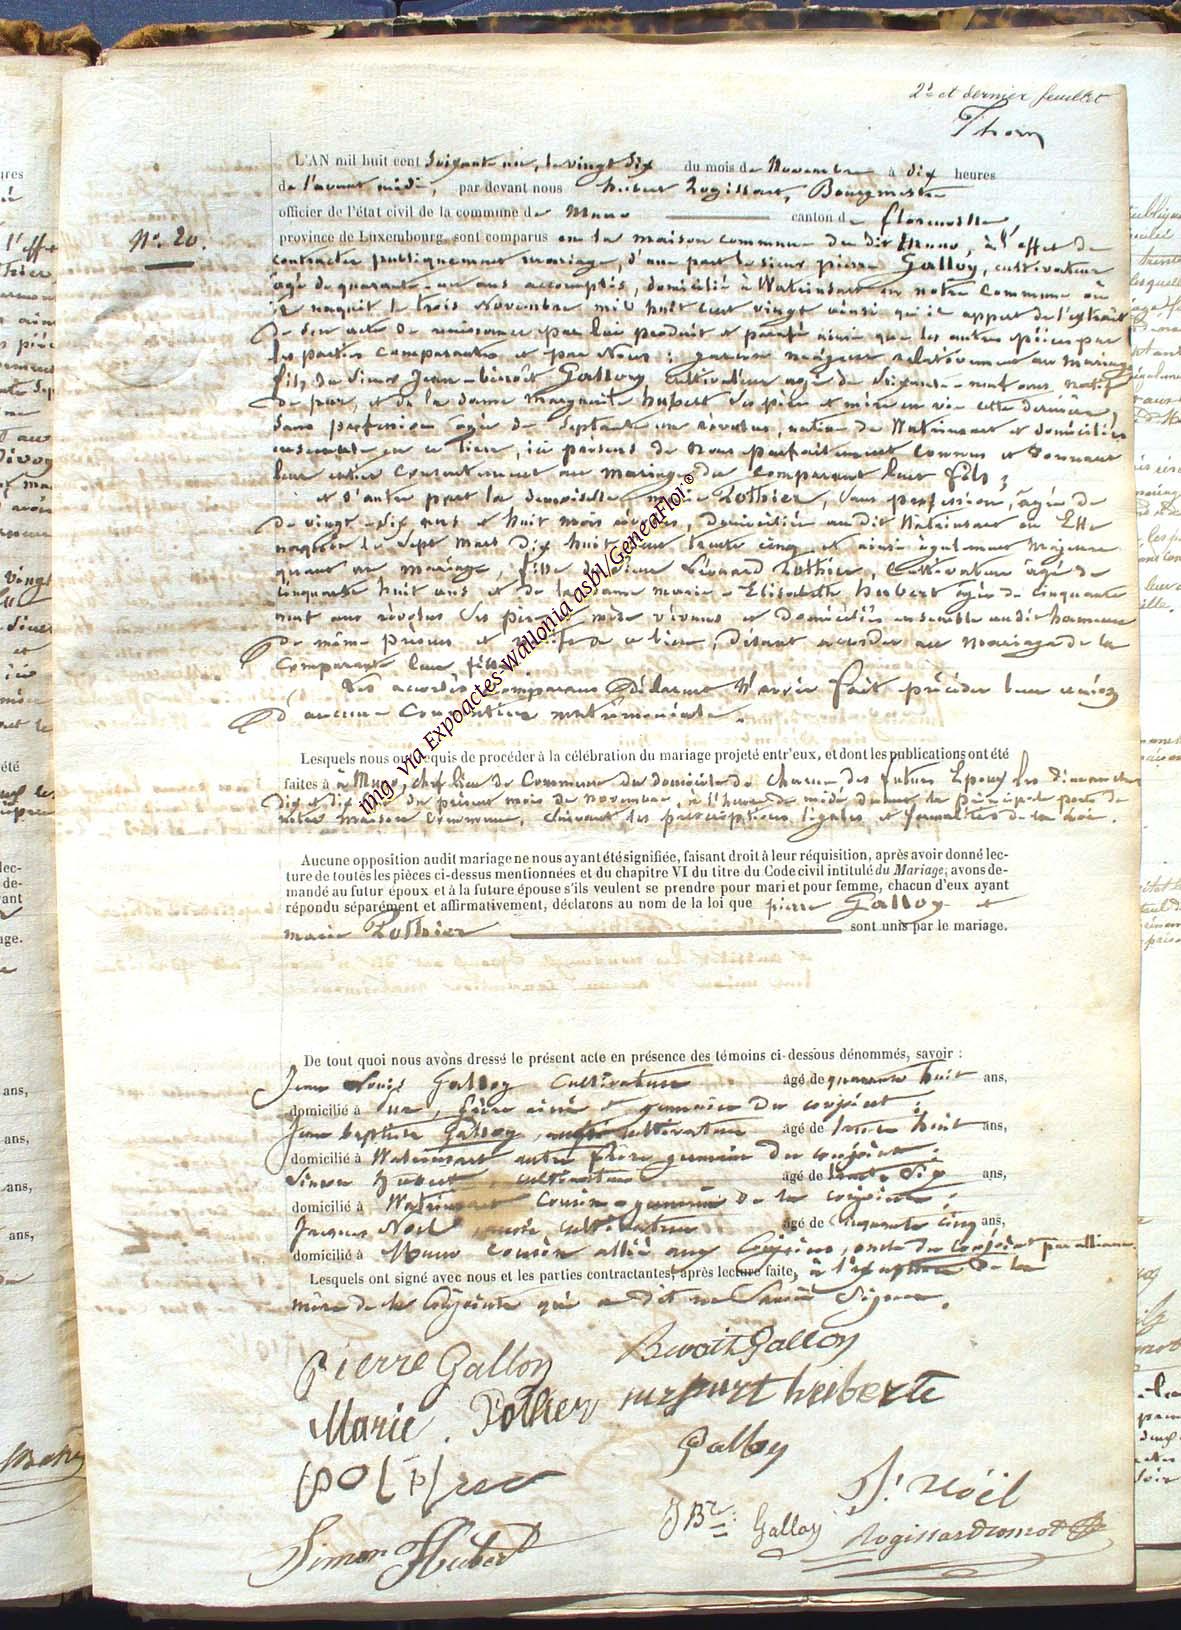 2d et dernier feuillet
Thorn
L'AN mil huit cent Soixante un, le vingt Six du mois de Novembre à dix heures
de l'avant midi, par devant nous hubert Rogissart, Bourgmestre
officier de l'état civil de la commune de Muno canton de florenville,
N°. 20.
province de Luxembourg, sont comparus en la maison commune du dit Muno, à l'effet de
contracter publiquement mariage, d'une part le sieur pierre Galloy, cultivateur
âgé de quarante-un ans accomplis, domicilié à Watrinsart en notre commune où
il naquit le trois Novembre mil huit cent vingt ainsi qu'il appert de l'extrait
de son acte de naissance par lui produit et parafé ainsi que les autres pièces par
les parties comparantes et par Nous; garçon majeur relativement au mariage
fils du Sieur Jean-benoît Galloy, cultivateur âgé de Soixante-neuf ans natif
de pur, et de la dame Marguerite hubert ses père et mère en vie cette dernière,
Sans profession âgée de Septante un révolus, native de Watrinsart et domiciliés
ensemble en ce lieu, ici présens de Nous parfaitement connus et donnant
leur entier consentement au mariage du comparant leur fils;
et d'autre part la demoiselle marie Pothier, Sans profession, âgée de
de vingt-Six ans et huit mois révolus, domiciliée au dit Watrinsart où Elle
naquit le Sept Mars dix huit cent trente cinq et ainsi également Majeure
quant au mariage, fille du Sieur Léonard Pothier, Cultivateur âgé de
Cinquante huit ans et de la dame marie-Elisabeth hubert âgée de Cinquante
neuf ans révolus Ses père et mère vivans et domiciliés ensemble audit hameau
de même présens et natifs de ce lieu, disant accorder au mariage de la
Comparante leur fille.
Les accordés Comparans déclarent N'avoir fait précéder leur union
d'aucune Convention matrimoniale.
Lesquels nous ont requis de procéder à la célébration du mariage projeté entr'eux, et dont les publications ont été
faites à Muno, chef lieu de Commune du domicile de chacun des futurs Epoux les dimanches
dix et dix Sept du présent mois de novembre, à l'heure de midi, devant la principale porte de
notre Maison Commune, Suivant les prescriptions légales et formalités de la Loi.
Aucune opposition audit mariage ne nous ayant été signifiée, faisant droit à leur réquisition, après avoir donné lec-
ture de toutes les pièces ci-dessus mentionnées et du chapitre VI du titre du Code civil intitulé du Mariage; avons de-
mandé au futur époux et à la future épouse s'ils veulent se prendre pour mari et pour femme, chacun d'eux ayant
répondu séparément et affirmativement, déclarons au nom de la loi que pierre Galloy et
marie Pothier sont unis par le mariage.
De tout quoi nous avons dressé le présent acte en présence des témoins ci-dessous dénommés, savoir :
Jean Louis Galloy Cultivateur âgé de quarante huit ans,
domicilié à Pur, frère aîné et germain du conjoint;
Jean baptiste Galloy, cultivateur âgé de trente huit ans,
domicilié à Watrinsart autre frère germain du conjoint;
Simon hubert, cultivateur âgé de trente Six ans,
domicilié à Watrinsart Cousin-germain de la conjointe;
Jacques Noël, cultivateur âgé de Cinquante cinq ans,
domicilié à Muno cousin allié aux Conjoins, oncle du Conjoint par alliance
Lesquels ont signé avec nous et les parties contractantes, après lecture faite, à l'exception de la
mère de la Conjointe qui a dit ne Savoir Signer.
Pierre Galloy Benoit Galloy
Marie Pothier margurit heiberte
Galloy
Pothier
J. Noël
J Bte. Galloy
Simon Hubert
Rogissart
img. via Expoactes-Wallonia asbl/GeneaFlor©